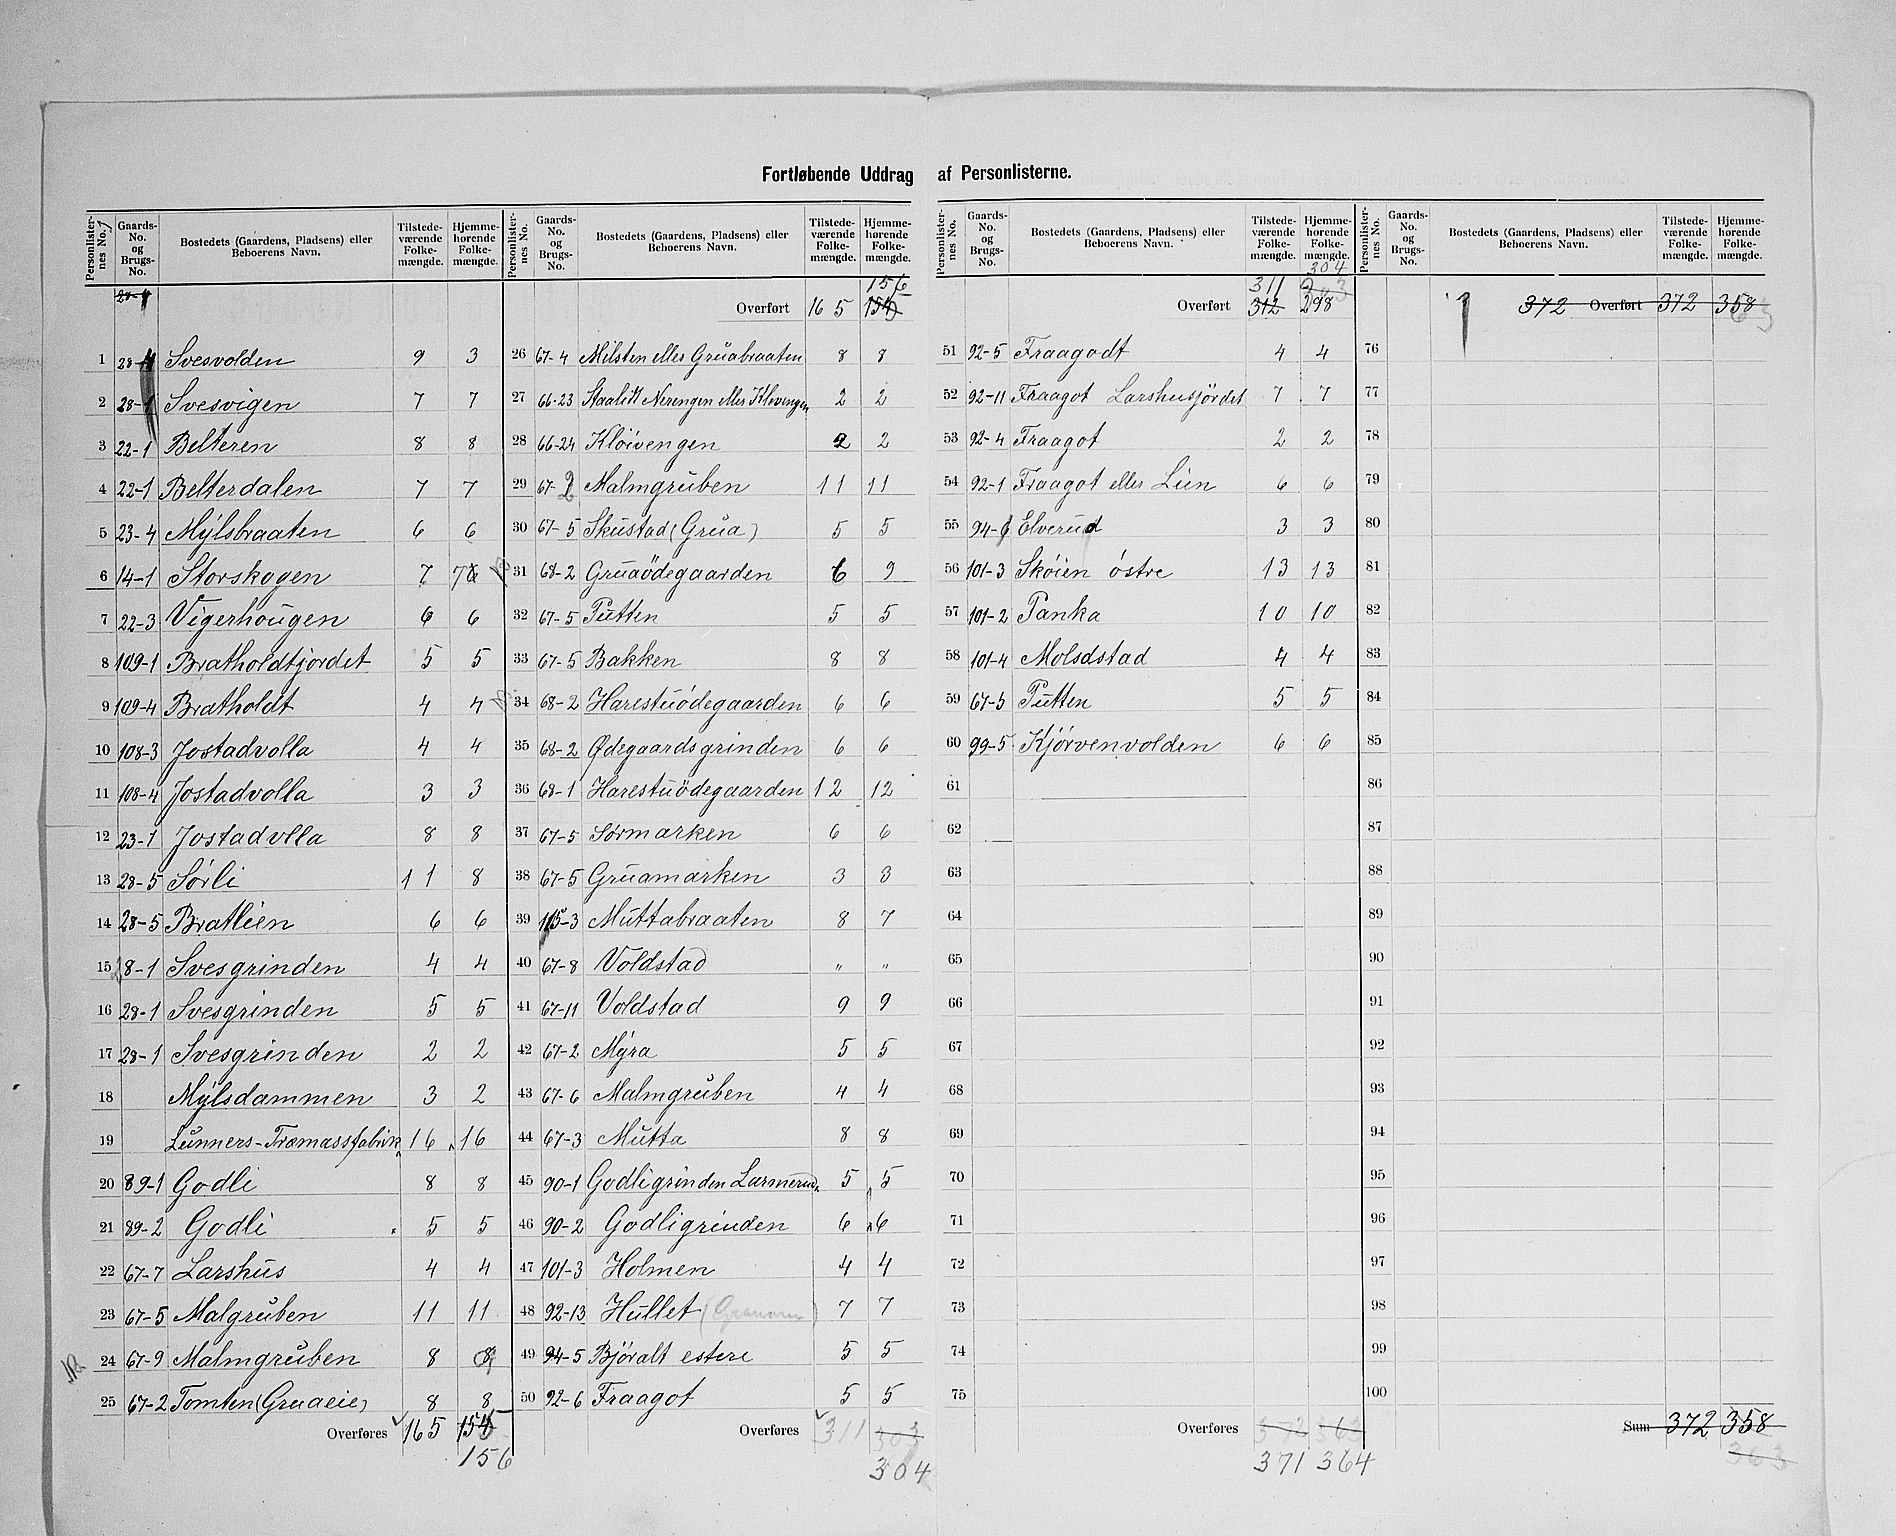 Fortløbende Uddrag af Personlisterne.
Personlister-nes No. | Gaards-No. og Brugs-No. | Bostedets (Gaardens, Pladsens) eller Beboerens Navn. | Tilstede-værende Folke-mængde. | Hjemme-hørende Folke-mængde.
28-4
1 28-4 Svesvolden 9 3
2 28-1 Svesvigen 7 7
3 22-1 Belteren 8 8
4 22-1 Belterdalen 7 7
5 23-4 Mylsbraaten 6 6
6 14-1 Storskogen 7 7
7 22-3 Vigerhougen 6 6
8 109-1 Bratholdtjordet 5 5
9 109-4 Bratholdt 4 4
10 108-3 Jostadvolla 4 4
11 108-4 Jostadvolla 3 3
12 23-1 Jostadvlla 8 8
13 28-5 Sørli 11 8
14 28-5 Bratlien 6 6
15 28-1 Svesgrinden 4 4
16 28-1 Svesgrinden 5 5
17 28-1 Svesgrinden 2 2
18 Mylsdammen 3 2
19 Lunners-Træmassfabrik 16 16
20 89-1 Godli 8 8
21 89-2 Godli 5 5
22 67-7 Larshus 4 4
23 67-5 Malgruben 11 11
24 67-9 Malmgruben 8 8
25 67-2 Tomten (Gruaeie) 8 8
Overføres 165 154
156
Personlister-nes No. | Gaards-No. og Brugs-No. | Bostedets (Gaardens, Pladsens) eller Beboerens Navn. | Tilstede-værende Folke-mængde. | Hjemme-hørende Folke-mængde.
156
Overført 165 154
26 67-4 Milsten eller Gruabraaten 8 8
27 66-23 Staalitt Nerengen eller Kløvengen 2 2
28 66-24 Kløivengen 2 2
29 67-2 Malmgruben 11 11
30 67-5 Skustad (Grua) 5 5
31 68-2 Gruaödegaarden 6 9
32 67-5 Putten 5 5
33 67-5 Bakken 8 8
34 68-2 Harestuödegaarden 6 6
35 68-2 Ødegaardsgrinden 6 6
36 68-1 Harestuödegaarden 12 12
37 67-5 Sørmarken 6 6
38 67-5 Gruamarken 3 3
39 115-3 Muttabraaten 8 7
40 67-8 Voldstad " "
41 67-11 Voldstad 9 9
42 67-2 Myra 5 5
43 67-6 Malmgruben 4 4
44 67-3 Mutta 8 8
45 90-1 Godligrinden Larmerud 5 5
46 90-2 Godligrinden 6 6
47 101-3 Holmen 4 4
48 92-13 Hullet 7 7
49 94-5 Björalt estere 5 5
50 92-6 Fraagot 5 5
Overføres 311 303
304
Personlister-nes No. | Gaards-No. og Brugs-No. | Bostedets (Gaardens, Pladsens) eller Beboerens Navn. | Tilstede-værende Folke-mængde. | Hjemme-hørende Folke-mængde.
304
311 303
Overført 312 298
51 92-5 Fraagodt 4 4
52 92-11 Fraagot Larshusjördet 7 7
53 92-4 Fraagot 2 2
54 92-1 Fraagot eller Lien 6 6
55 94-6 Elverud 3 3
56 101-3 Skøien østre 13 13
57 101-2 Panka 10 10
58 101-4 Molsdstad 4 4
59 67-5 Putten 5 5
60 99-5 Kjørvenvolden 6 6
61
62
63
64
65
66
67
68
69
70
71
72
73
74
75
Overføres 372 363
371 364
Personlister-nes No. | Gaards-No. og Brugs-No. | Bostedets (Gaardens, Pladsens) eller Beboerens Navn. | Tilstede-værende Folke-mængde. | Hjemme-hørende Folke-mængde.
372 Overført 372 358
63
76
77
78
79
80
81
82
83
84
85
86
87
88
89
90
91
92
93
94
95
96
97
98
99
100
Sum 372 358
363